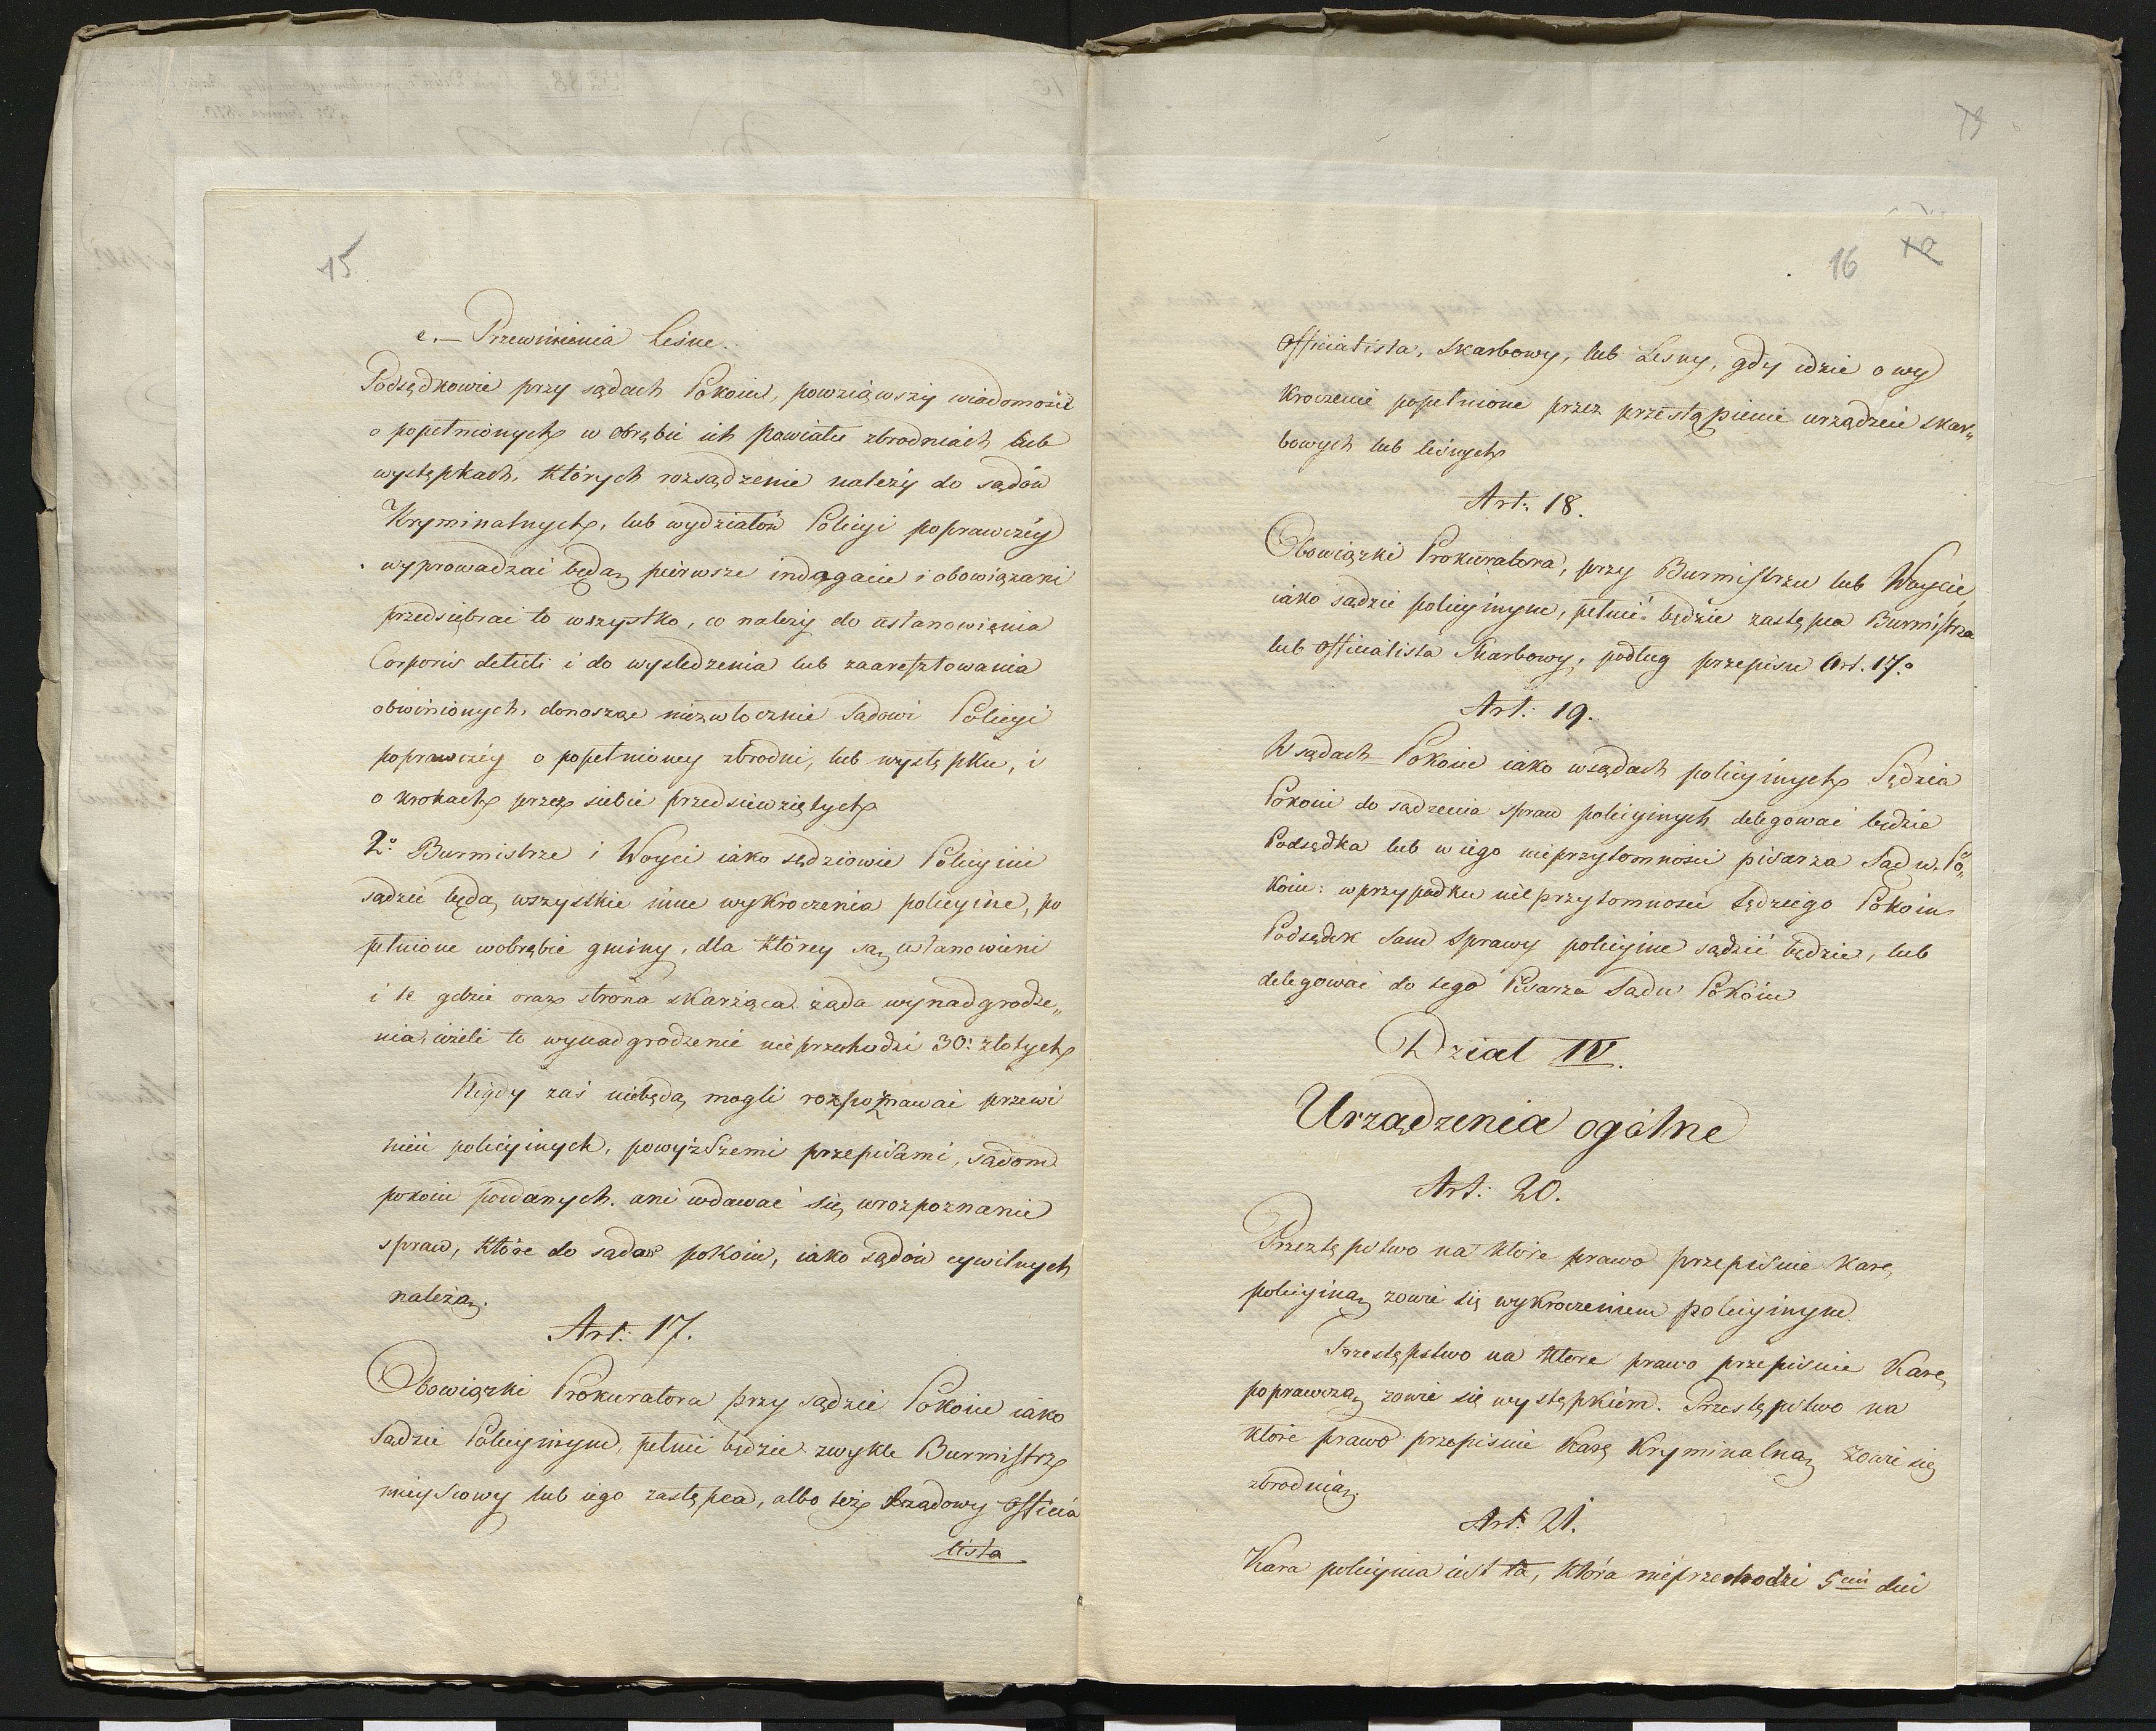 15
e. — Przewinienia leśne.
Podsędkowie przy sądach Pokoiu, powziąwszy wiadomość
o popełnionych w obrębie ich powiatu zbrodniach lub
występkach, których rozsądzenie należy do sądów
Kryminalnych, lub wydziałów Policyi poprawczéy
wyprowadzać będą pierwsze indagacie i obowiązani
przedsiębrać to wszystko, co należy do ustanowienia
Corporis delicti i do wysledzenia lub zaaresztowania
obwinionych, donosząc niezwłocznie Sądowi Policyi
poprawczéy o popełnioney zbrodni, lub występku, i
o krokach przez siebie przedsiewziętych
2o. Burmistrze i Woyci iako sędziowie Policyini
sądzić będą, wszystkie inne wykroczenia policyine, po
pełnione wobrębie gminy, dla którey są ustanowieni
i te gdzie oraz strona skarżąca żąda wynadgrodze„
nia, ieżeli to wynadgrodzenie nieprzechodzi 30: złotych
Nigdy zaś niebędą mogli rozpoznawać przewi
nień policyinych, powyższemi przepisami, sądom
pokoiu poddanych. ani wdawać się wrozpoznanie
spraw, które do sądów pokoiu, iako sądów cywilnych
należą.
Art: 17.
Obowiązki Prokuratora przy sądzie Pokoiu iako
Sądzie Policyinym, pełnić będzie zwykle Burmistrz
mieyscowy lub iego zastępca, albo też Rządowy officia
lista
73
16 12
officialista, Skarbowy, lub Lesny, gdy idzie o wy
kroczenie popełnione przez przestąpienie urządzeń skar„
bowych lub leśnych
Art: 18.
Obowiązki Prokuratora, przy Burmistrzu lub Woycie,
iako sądzie policyinym, pełnić będzie zastępca Burmistrza
lub officialista Skarbowy, podług przepisu Art. 17o
Art: 19.
W sądach Pokoiu iako wsądach policyinych Sędzia
Pokoiu do sądzenia spraw policyinych delegować będzie
Podsędka lub w iego nieprzytomności pisarza Sądu Po„
koiu: w przypadku nieprzytomności Sędziego Pokoiu
Podsędek sam sprawy policyine sądzić będzie, lub
delegować do tego Pisarza Sądu Pokoiu
Dział IV.
Urządzenia ogólne
Art: 20.
Przestępstwo na które prawo przepisuie karę
policyiną zowie się wykroczeniem policyinym.
Przestępstwo na które prawo przepisuie Karę
poprawczą zowie się występkiem. Przestępstwo na
które prawo przepisuie karę Kryminalną zowie się
zbrodnią.
Art: 21.
Kara policyina iest ta, która nieprzechodzi 5ciu dni